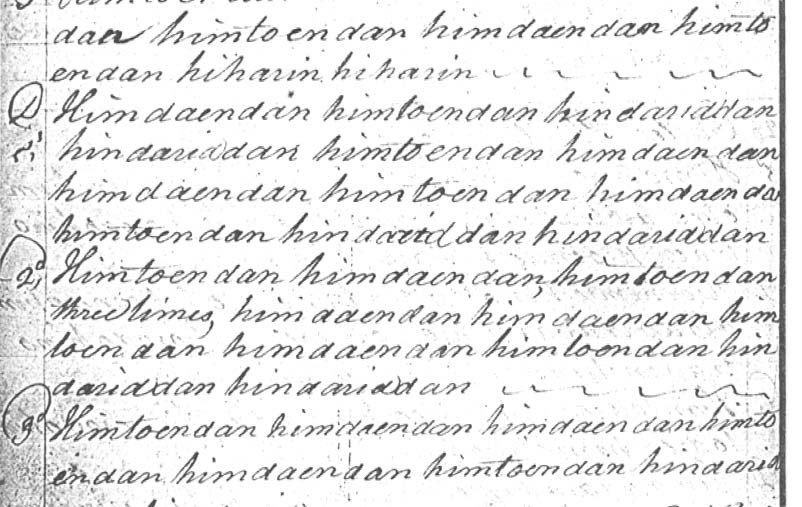 dan himtoendan himdaendan himto
endan hiharin hiharin
D Himdaendan himtoendan hindariddan
hindariddan himtoendan himdaendan
himdaendan himtoendan himdaenda
himtoendan hindariddan hindariddan
2d Himtoendan himdaendan, himtoendan
three times, himdaendan himdaendan him
toendan himdaendan himtoendan hin
dariddan hindariddan
3d Himtoendan himdaendan himdaendan himto
endan himdaendan himtoendan hindarid